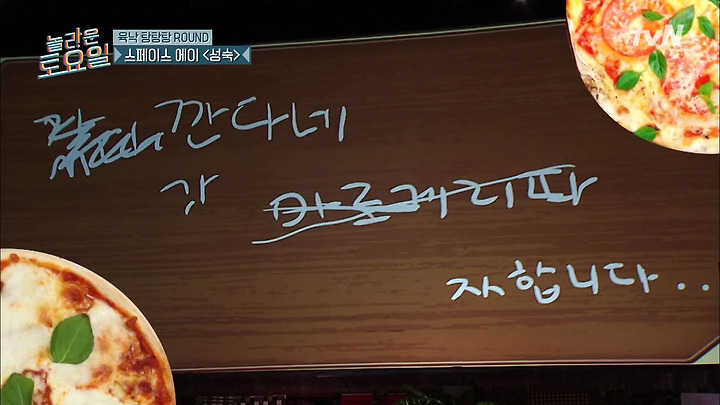 놀라운 토요일
육낙 탕탕탕 ROUND
스페이스 에이 <성숙>
tvN
깐다네
가
자합니다..